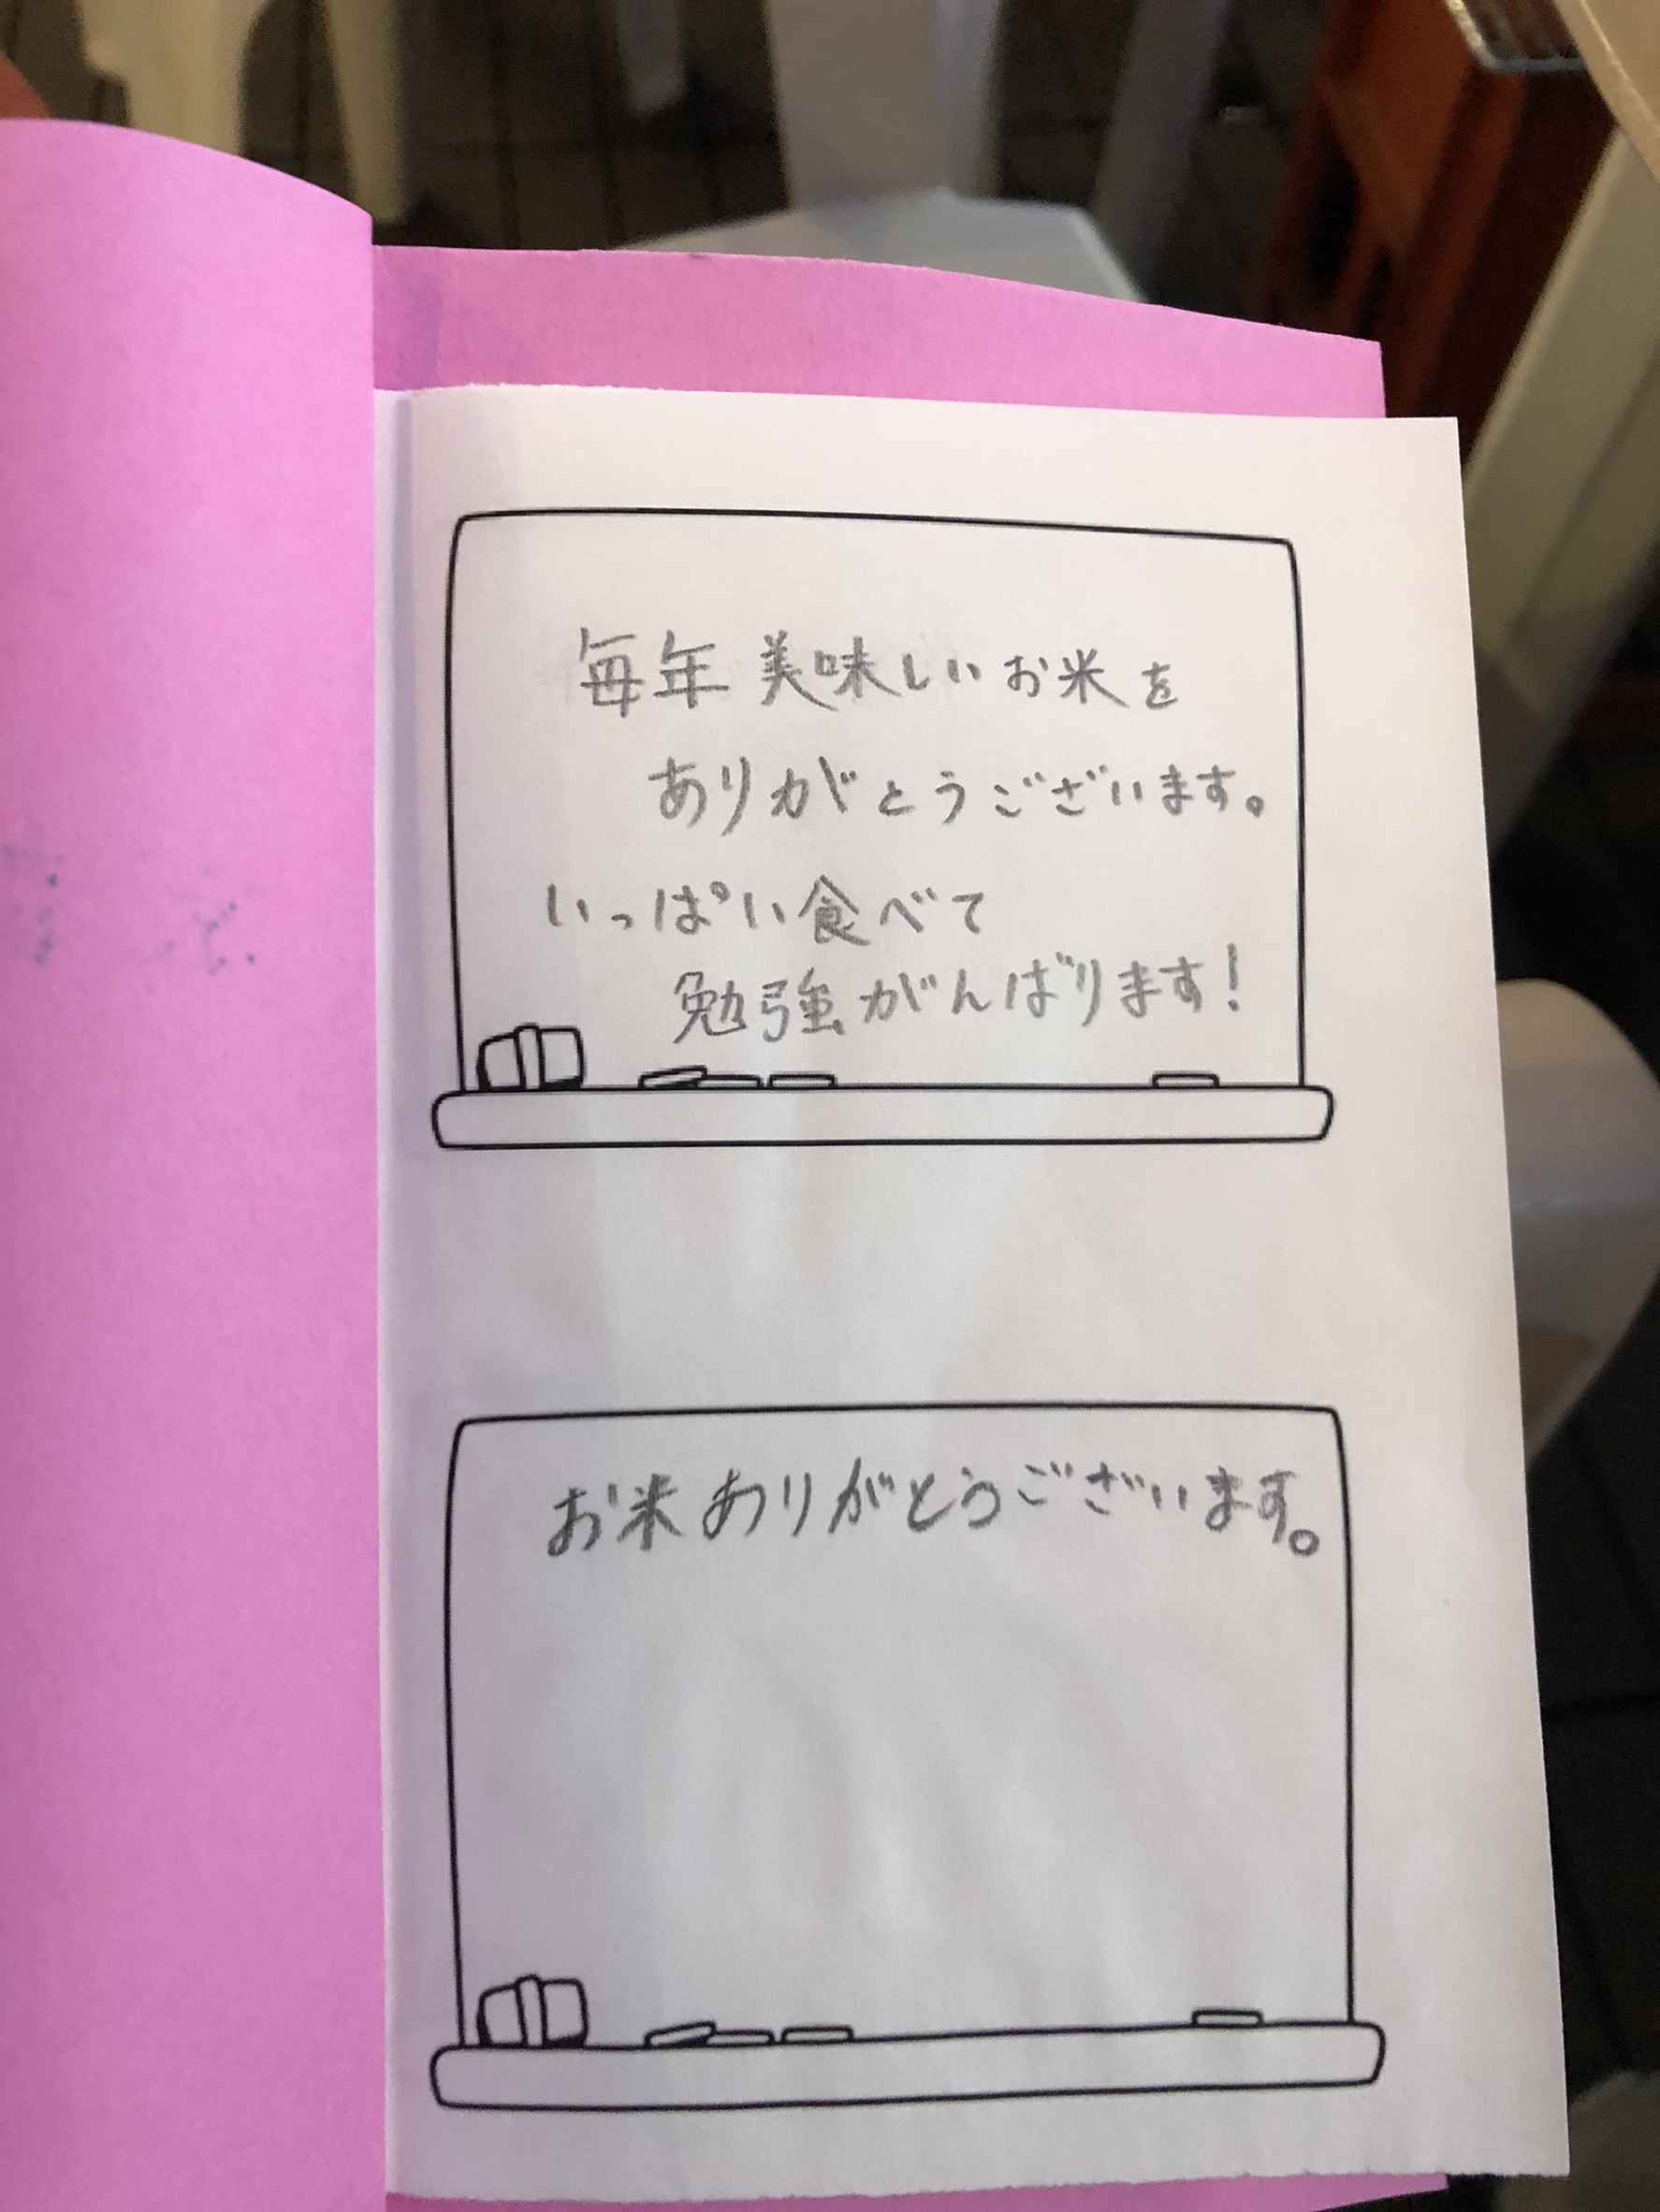 毎年美味しいお米を
ありがとうございます。
いっぱい食べて
勉強がんばります!
お米ありがとうございます。